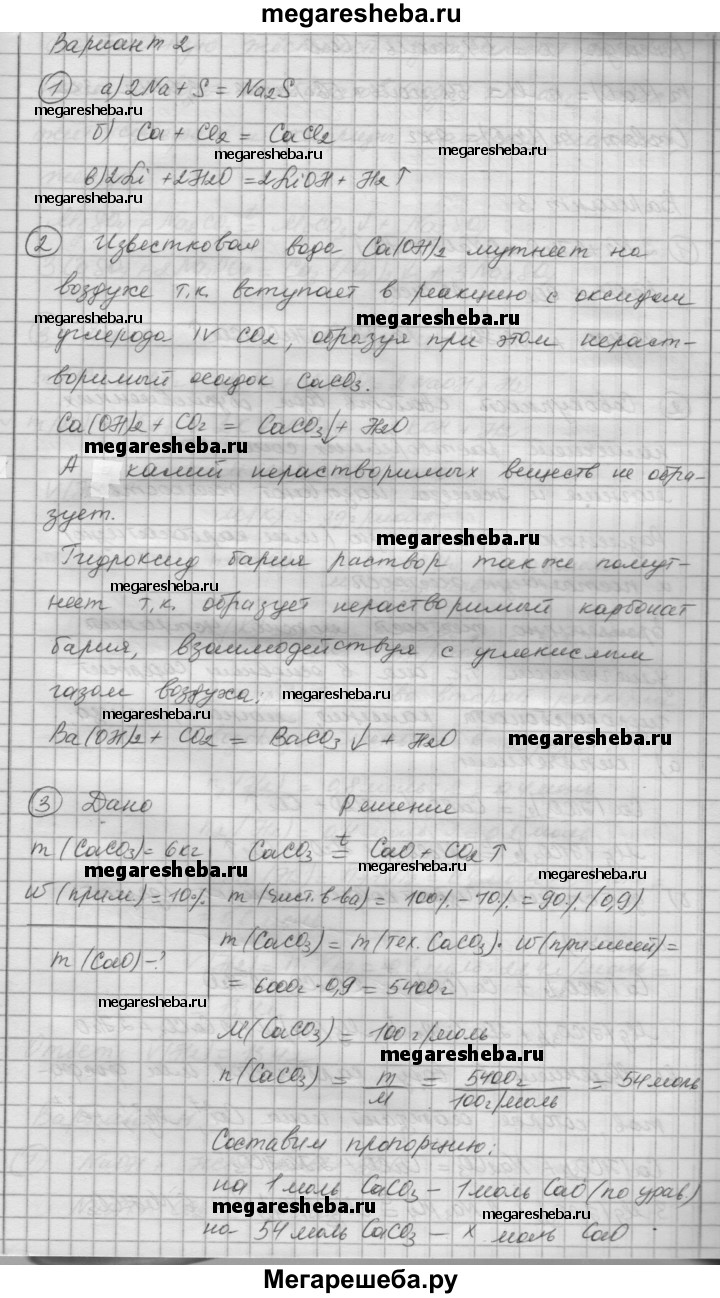 megaresheba.ru
Вариант 2
① а) 2Na + S = Na2S
megaresheba.ru
б) Ca + Cl2 = CaCl2
megaresheba.ru
megaresheba.ru
в) 2Li + 2H2O = 2LiOH + H2↑
megaresheba.ru
② Известковая вода Ca(OH)2 мутнеет на
воздухе т.к. вступает в реакцию с оксидом
megaresheba.ru
megaresheba.ru
углерода IV CO2, образуя при этом нераст-
воримый осадок CaCO3.
megaresheba.ru
Ca(OH)2 + CO2 = CaCO3↓ + H2O
megaresheba.ru
А калий нерастворимых веществ не обра-
зует.
megaresheba.ru
Гидроксид бария раствор также помут-
megaresheba.ru
неет т.к. образует нерастворимый карбонат
бария, взаимодействуя с углекислым
газом воздуха:
megaresheba.ru
megaresheba.ru
Ba(OH)2 + CO2 = BaCO3↓ + H2O
megaresheba.ru
③ Дано Решение
megaresheba.ru
m(CaCO3) = 6кг CaCO3 t= CaO + CO2↑
megaresheba.ru
megaresheba.ru
W(прим.) = 10% m(чист. в-ва) = 100% - 10% = 90% (0,9)
m(CaO) - ? m(CaCO3) = m(тех. CaCO3) · W(примесей) =
megaresheba.ru
= 6000г · 0,9 = 5400г
megaresheba.ru
M(CaCO3) = 100г/моль
megaresheba.ru
n(CaCO3) = m/M = 5400г/100г/моль = 54 моль
Составим пропорцию:
megaresheba.ru
на 1 моль CaCO3 - 1 моль CaO (по урав)
megaresheba.ru
megaresheba.ru
на 54 моль CaCO3 - x моль CaO
megaresheba.ru
Мегарешеба.ру